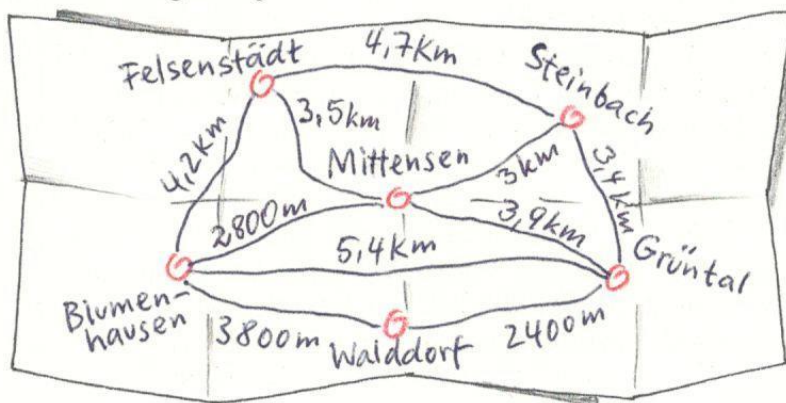 4,7km
Felsenstädt
Steinbach
3,5km
4,2km
Mittensen
3km
3,4km
2800m
3,9km
5,4km
Grüntal
Blumen-
hausen
3800m
Walddorf
2400m